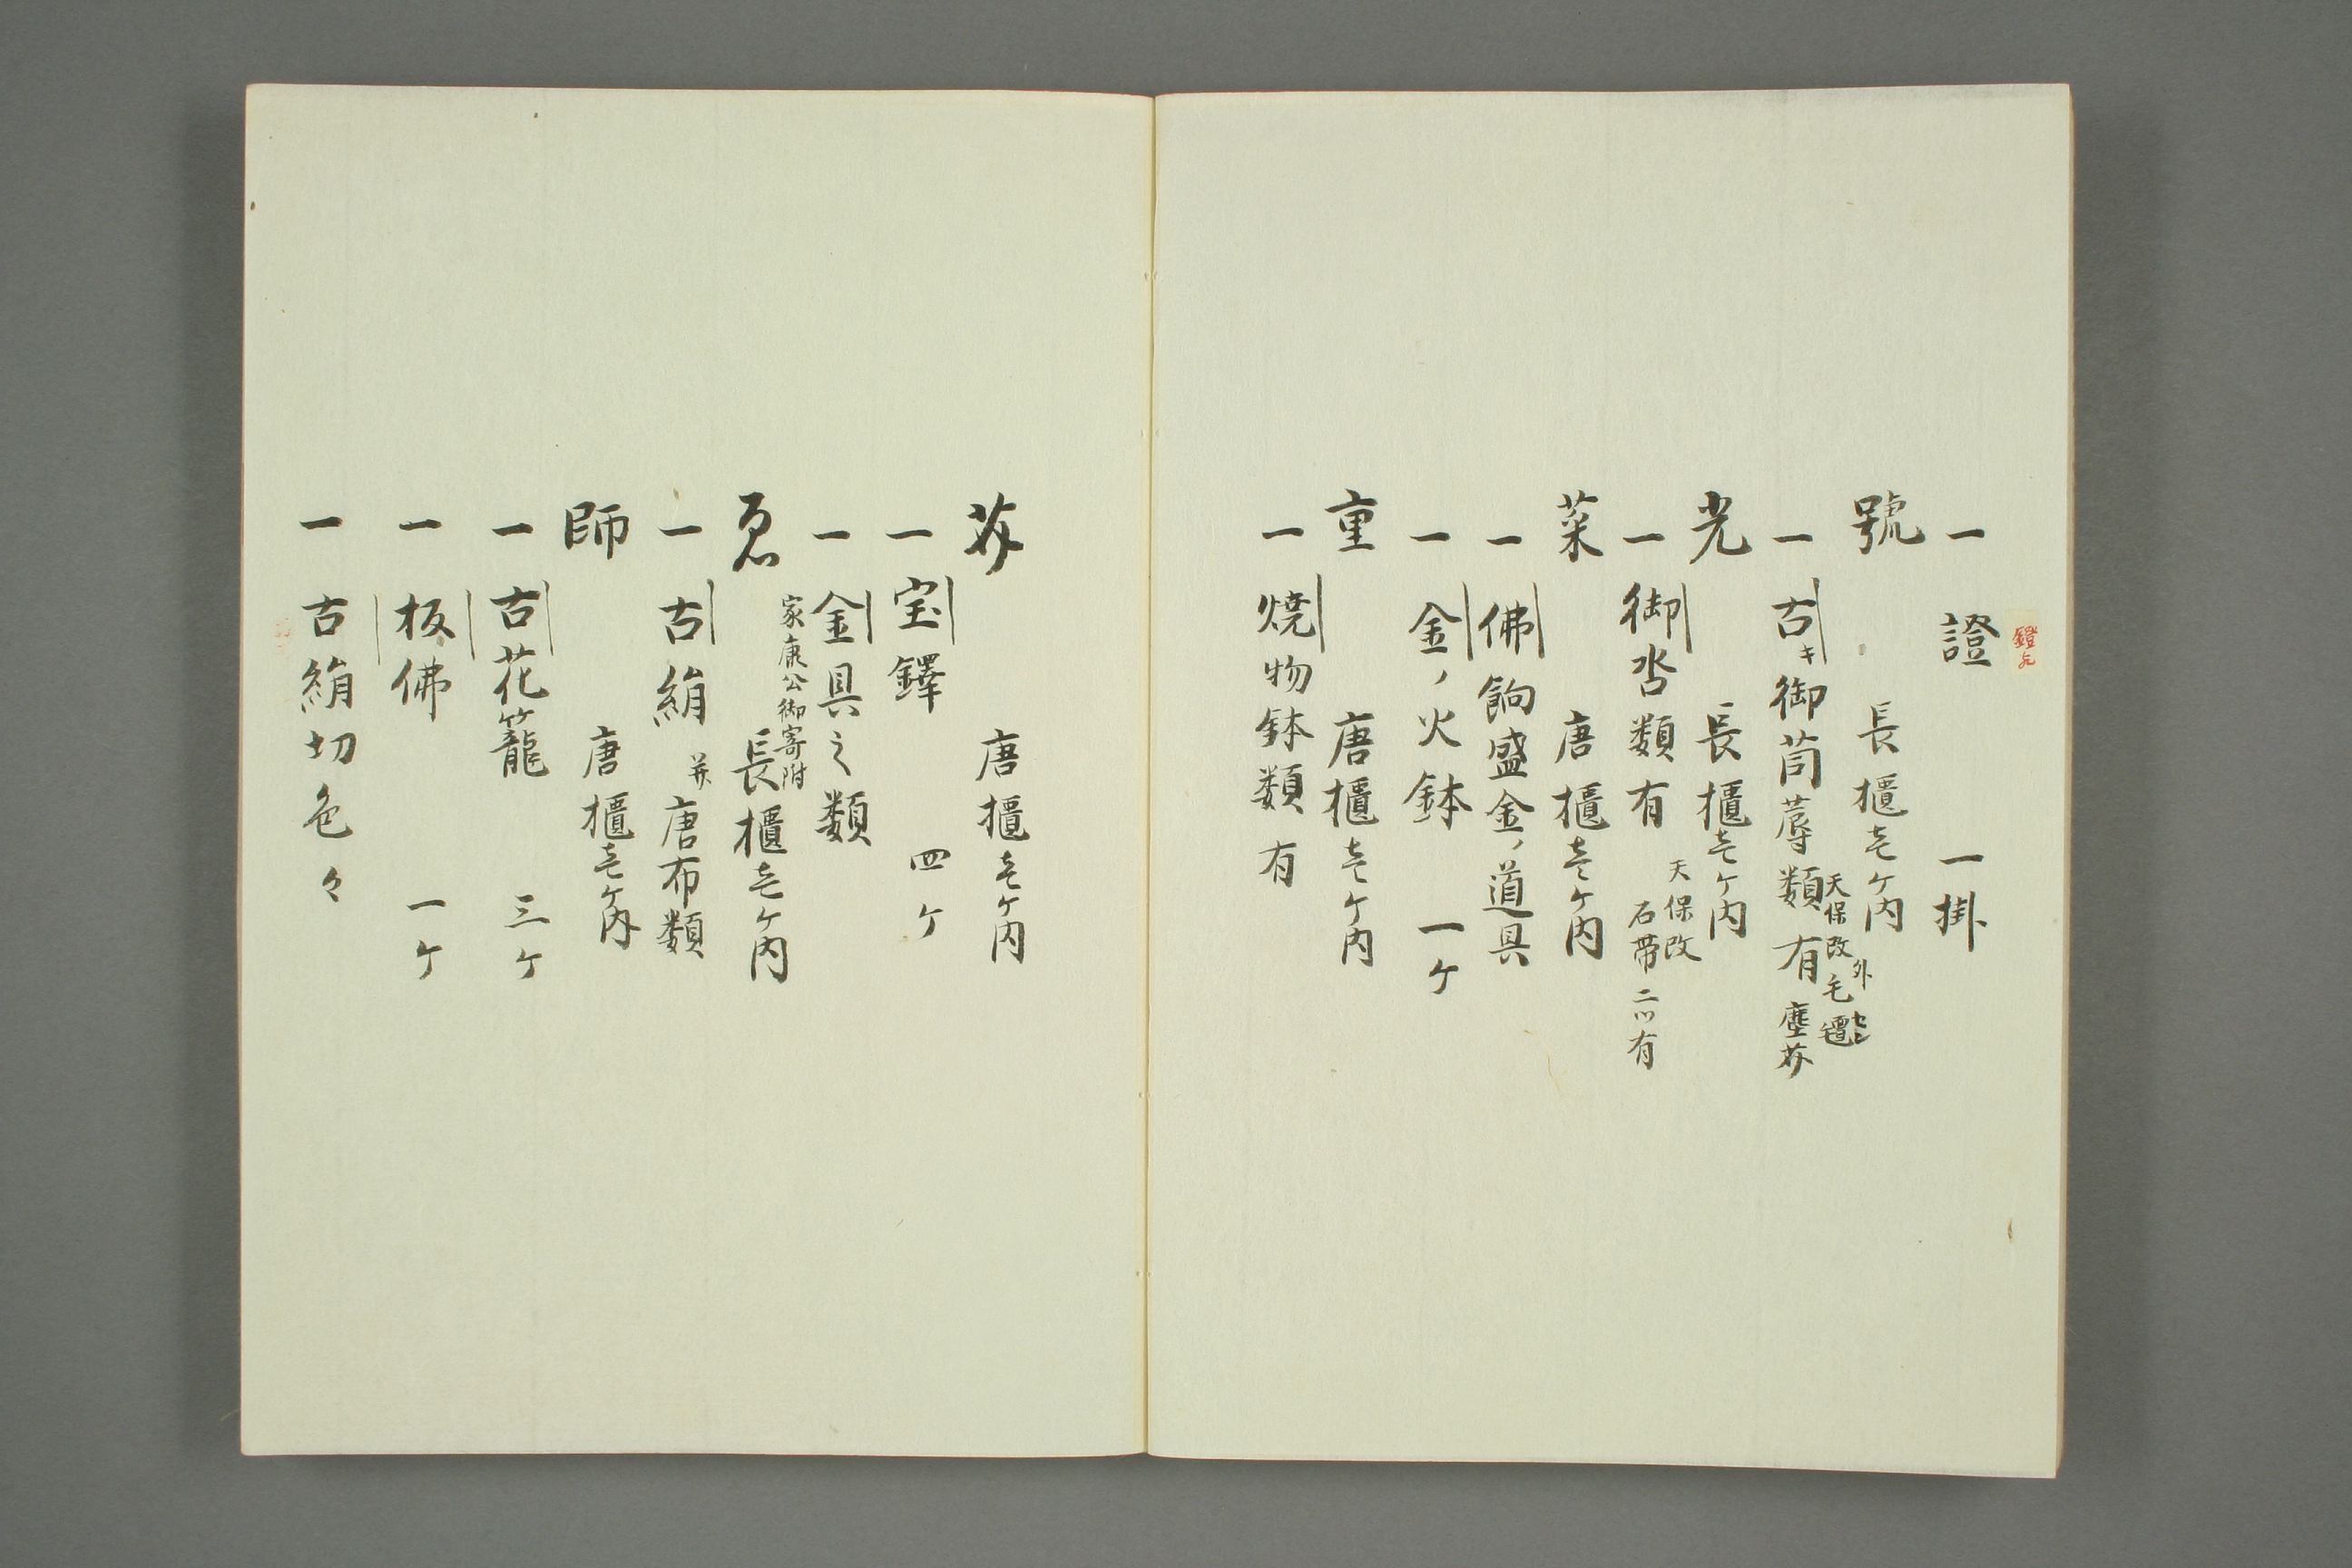 一 證 一掛
號 長櫃壱ケ内
一 古キ御茵蓐類有 塵芥
天保改 外 毛氈
光 長櫃壱ケ内
一 御沓類有
天保改
石帯二ツ有
菜 唐櫃壱ケ内
一 佛餉盛金ノ道具
一 金ノ火鉢 一ケ
重 唐櫃壱ケ内
一 焼物鉢類有
芥 唐櫃壱ケ内
一 宝鐸 四ケ
一 金具之類
家康公御寄附
長櫃壱ケ内
一 古絹 并 唐布類
師 唐櫃壱ケ内
一 古花籠 三ケ
一 板佛 一ケ
一 古絹切色々